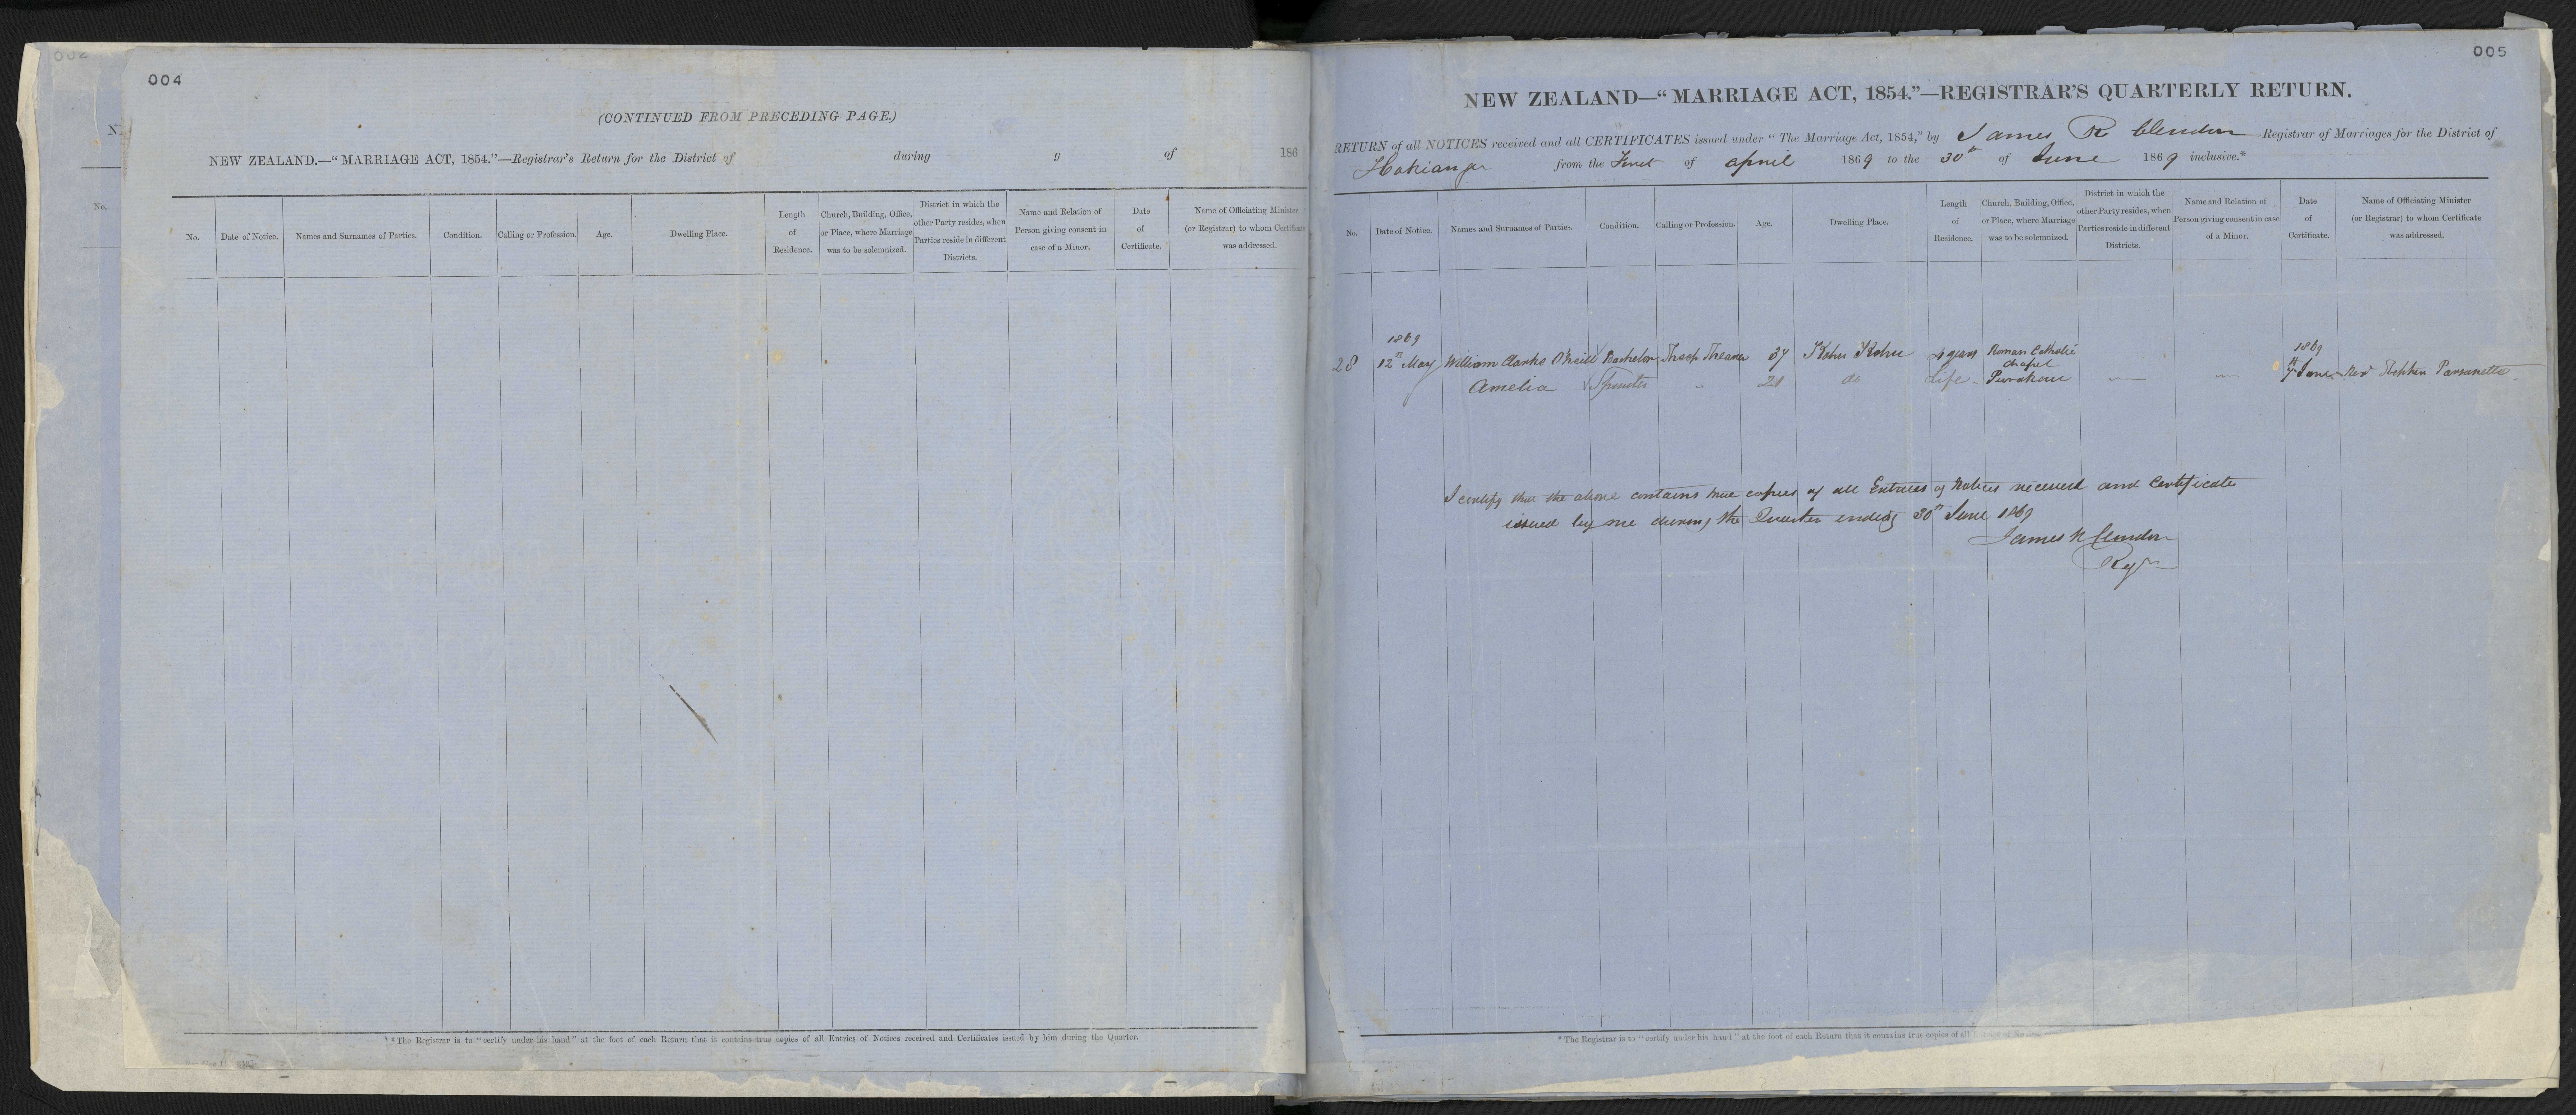 002
N
No.
004
(CONTINUED FROM PRECEDING PAGE.)
NEW ZEALAND.—“MARRIAGE ACT, 1854.”—Registrar's Return for the District of during of 186
No. Date of Notice. Names and Surnames of Parties. Condition. Calling or Profession. Age. Dwelling Place. Length of Residence. Church, Building, Office, or Place, where Marriage was to be solemnized. District in which the other Party resides, when Parties reside in different Districts. Name and Relation of Person giving consent in case of a Minor. Date of Certificate. Name of Officiating Minister (or Registrar) to whom Certificate was addressed.
* The Registrar is to “certify under his hand” at the foot of each Return that it contains true copies of all Entries of Notices received and Certificates issued by him during the Quarter.
005
NEW ZEALAND—“MARRIAGE ACT, 1854.”—REGISTRAR'S QUARTERLY RETURN.
RETURN of all NOTICES received and all CERTIFICATES issued under “The Marriage Act, 1854,” by James R Clendon Registrar of Marriages for the District of
Hokianga from the First of April 1869 to the 30th of June 1869 inclusive.*
No. Date of Notice. Names and Surnames of Parties. Condition. Calling or Profession. Age. Dwelling Place. Length of Residence. Church, Building, Office, or Place, where Marriage was to be solemnized. District in which the other Party resides, when Parties reside in different Districts. Name and Relation of Person giving consent in case of a Minor. Date of Certificate. Name of Officiating Minister (or Registrar) to whom Certificate was addressed.
1869 1869
28 12th May William Clarke O'Neill Bachelor 37 Kohu Kohu 4 years Roman Catholic Chapel June Revd
Amelia Spinster " 21 do Life Purakau — —
I certify that the above contains true copies of all Entries of Notices received and Certificate
issued by me during the Quarter ending 30th June 1869
James R Clendon
Regr
* The Registrar is to “certify under his hand” at the foot of each Return that it contains true copies of all